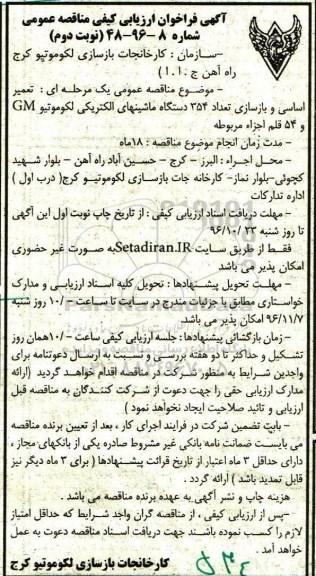 آگهی فراخوان ارزیابی کیفی مناقصه عمومی
شماره ۸-۹۶-۴۸ (نوبت دوم)
-سازمان : کارخانجات بازسازی لکوموتیو کرج
راه آهن ج.ا.ا )
- موضوع مناقصه عمومی یک مرحله ای : تعمیر
اساسی و بازسازی تعداد ۳۵۴ دستگاه ماشینهای الکتریکی لکوموتیو GM
و ۵۴ قلم اجزاء مربوطه
- مدت زمان انجام موضوع مناقصه : ۱۸ماه
- محل اجراء : البرز - کرج - حسین آباد راه آهن - بلوار شهید
کچوئی-بلوار نماز- کارخانه جات بازسازی لکوموتیو کرج( درب اول )
اداره تدارکات
- مهلت دریافت اسناد ارزیابی کیفی : از تاریخ چاپ نوبت اول این آگهی
تا روز شنبه ۹۶/۱۰/۲۳
فقط از طریق سایت Setadiran.IRبه صورت غیر حضوری
امکان پذیر می باشد
- مهلت تحویل پیشنهادها : تحویل کلیه اسناد ارزیابی و مدارک
خواستاری مطابق با جزئیات مندرج در سایت تا ساعت ۱۰/۰۰ روز شنبه
۹۶/۱۱/۷ امکان پذیر می باشد
- زمان بازگشائی پیشنهادها : جلسه ارزیابی کیفی ساعت ۱۰/۰۰همان روز
تشکیل و حداکثر تا دو هفته بررسی و نسبت به ارسال دعوتنامه برای
واجدین شرایط به منظور شرکت در مناقصه اقدام خواهد گردید (ارائه
مدارک ارزیابی حقی را جهت دعوت از شرکت کنندگان به مناقصه قبل
ارزیابی و تائید صلاحیت ایجاد نخواهد نمود )
- بابت تضمین شرکت در فرایند اجرای کار ، بعد از تعیین برنده مناقصه
می بایست ضمانت نامه بانکی غیر مشروط صادره یکی از بانکهای مجاز ،
دارای حداقل ۳ ماه اعتبار از تاریخ قرائت پیشنهادها ( برای ۳ ماه دیگر نیز
قابل تمدید باشد ) ارائه گردد .
هزینه چاپ و نشر آگهی به عهده برنده مناقصه می باشد .
-پس از ارزیابی کیفی ، از مناقصه گران واجد شرایط که حداقل امتیاز
لازم را کسب نموده باشند جهت دریافت اسناد مناقصه دعوت به عمل
خواهد آمد .
کارخانجات بازسازی لکوموتیو کرج